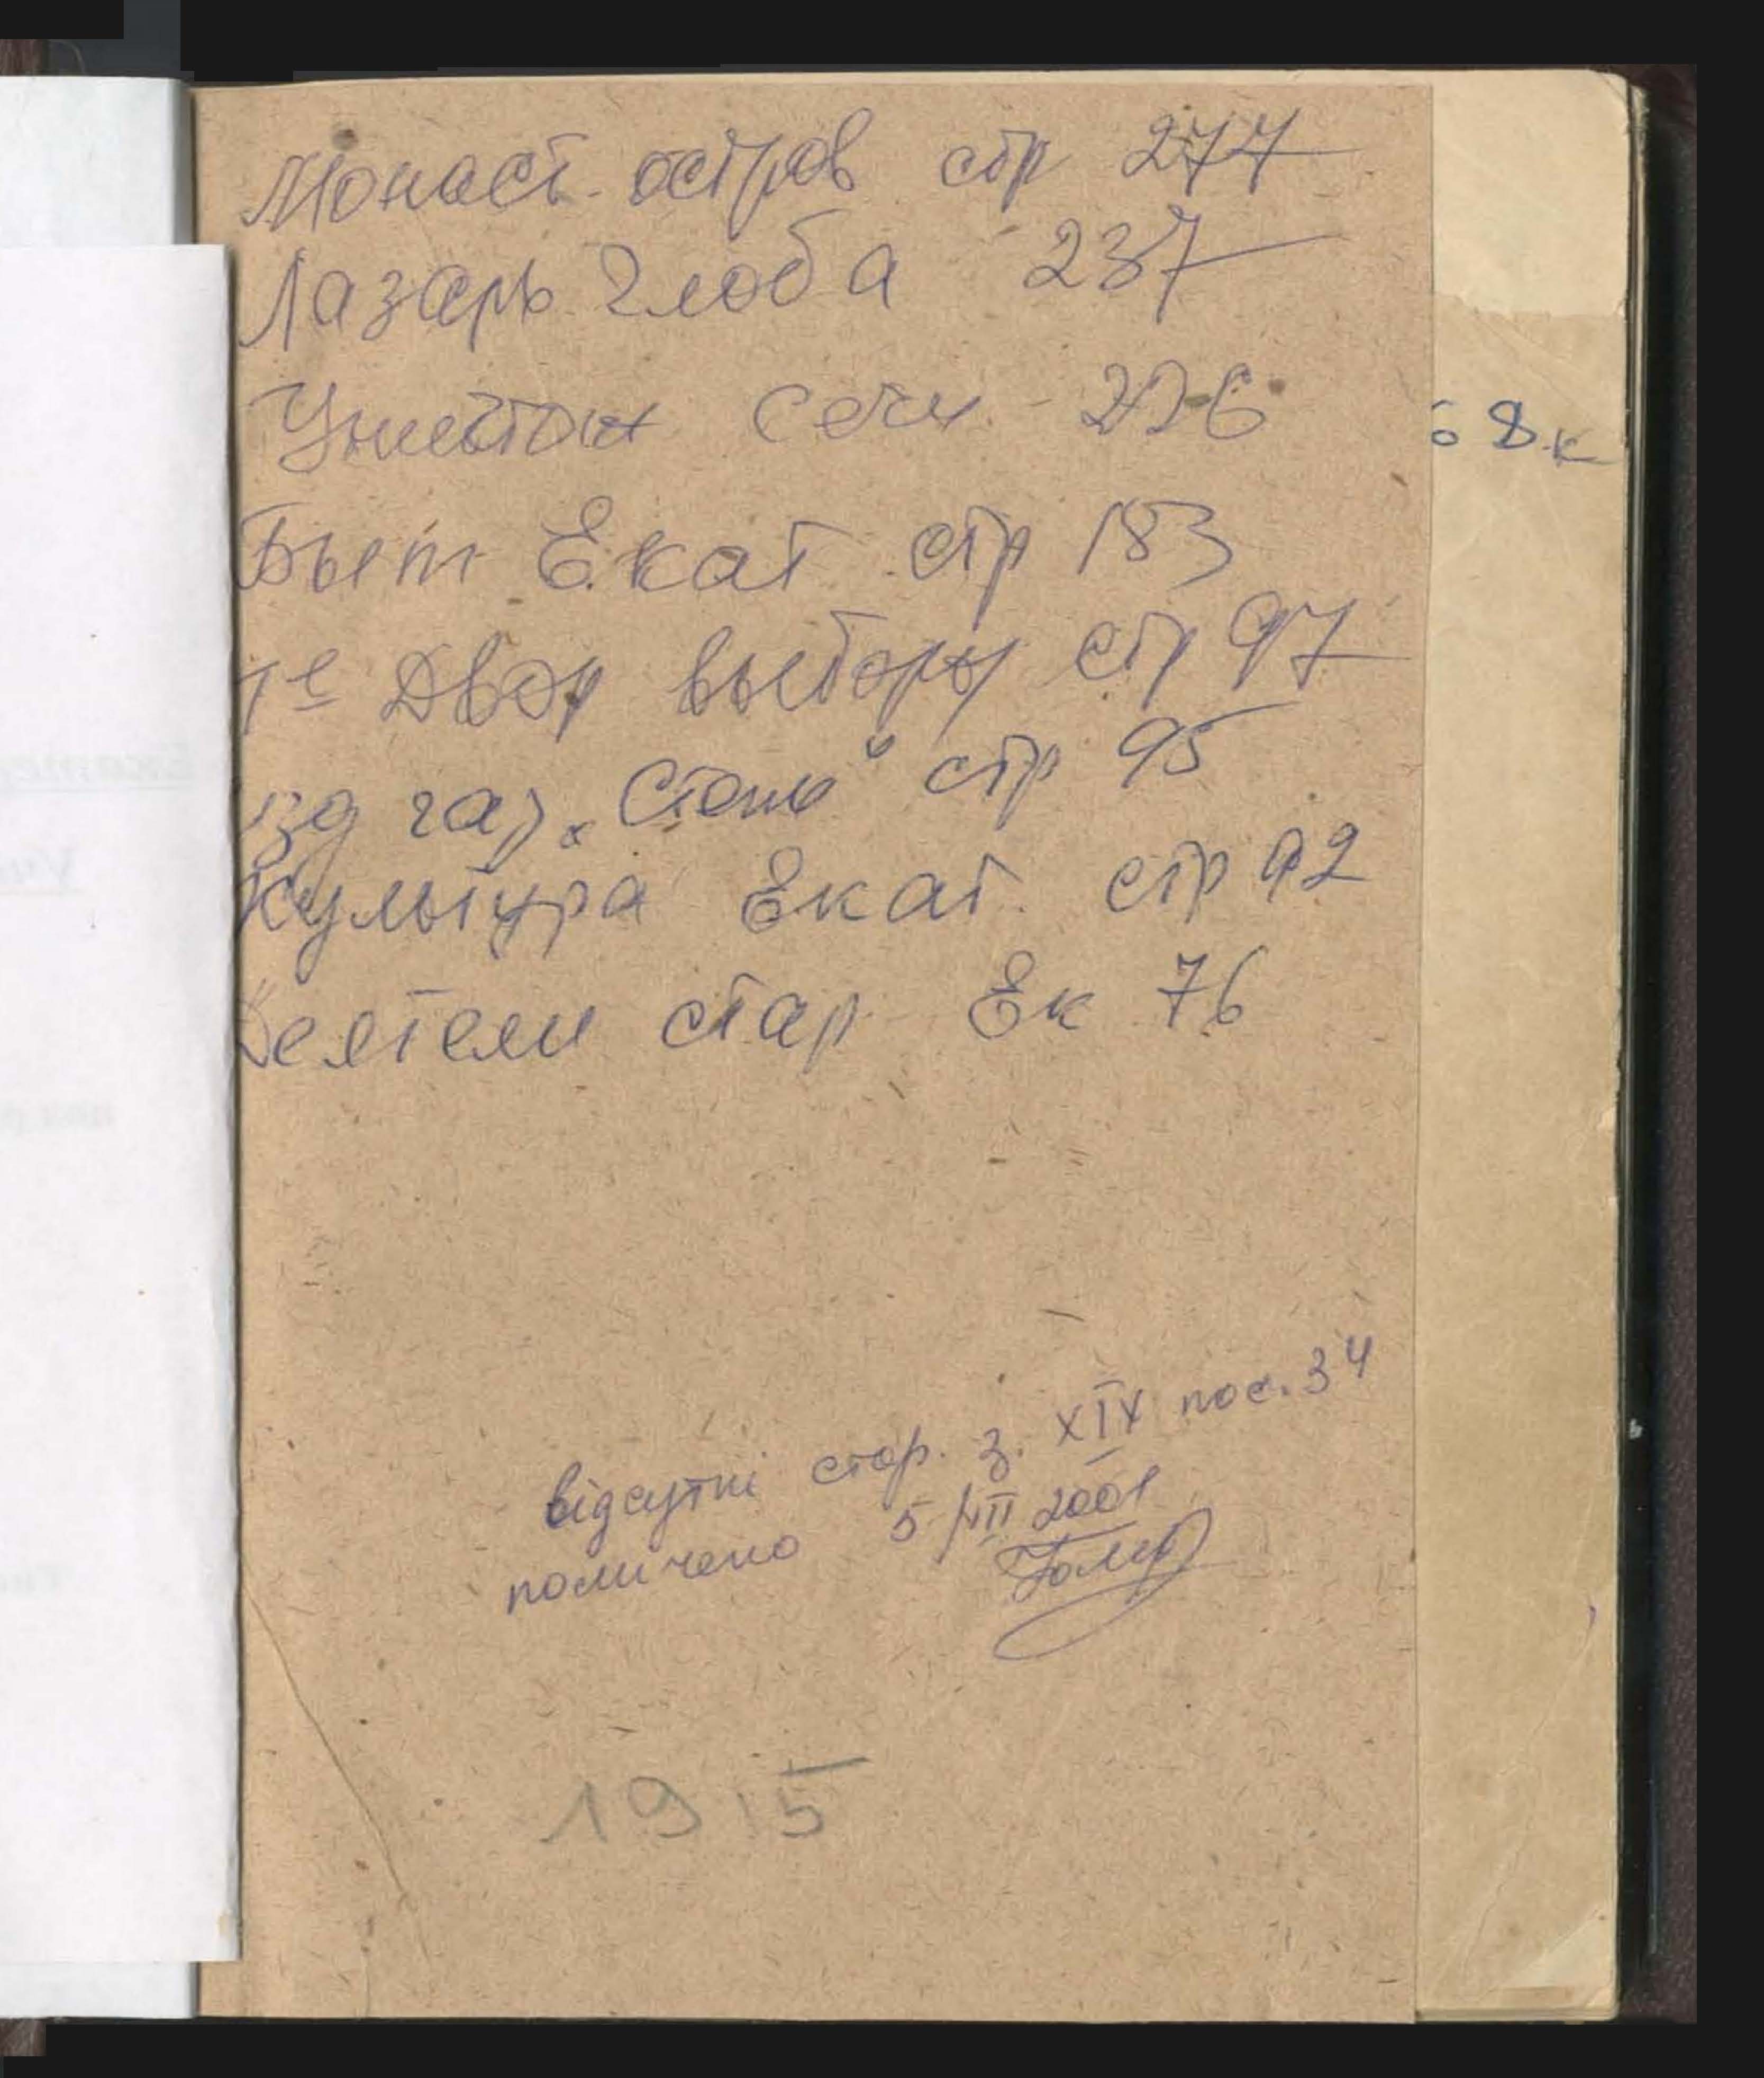 Монаст. остров стр 277
Лазарь Глоба 237
Уничтож сечи 226
Быт Екат стр 183
1е Двор выборы стр 97
изд газ „Степь“ стр 95
Культура Екат. стр 92
Деятели стар Ек 76
68к
відсутні стор. з. XIX по с. 34
помічено 5/VII 2001
1915